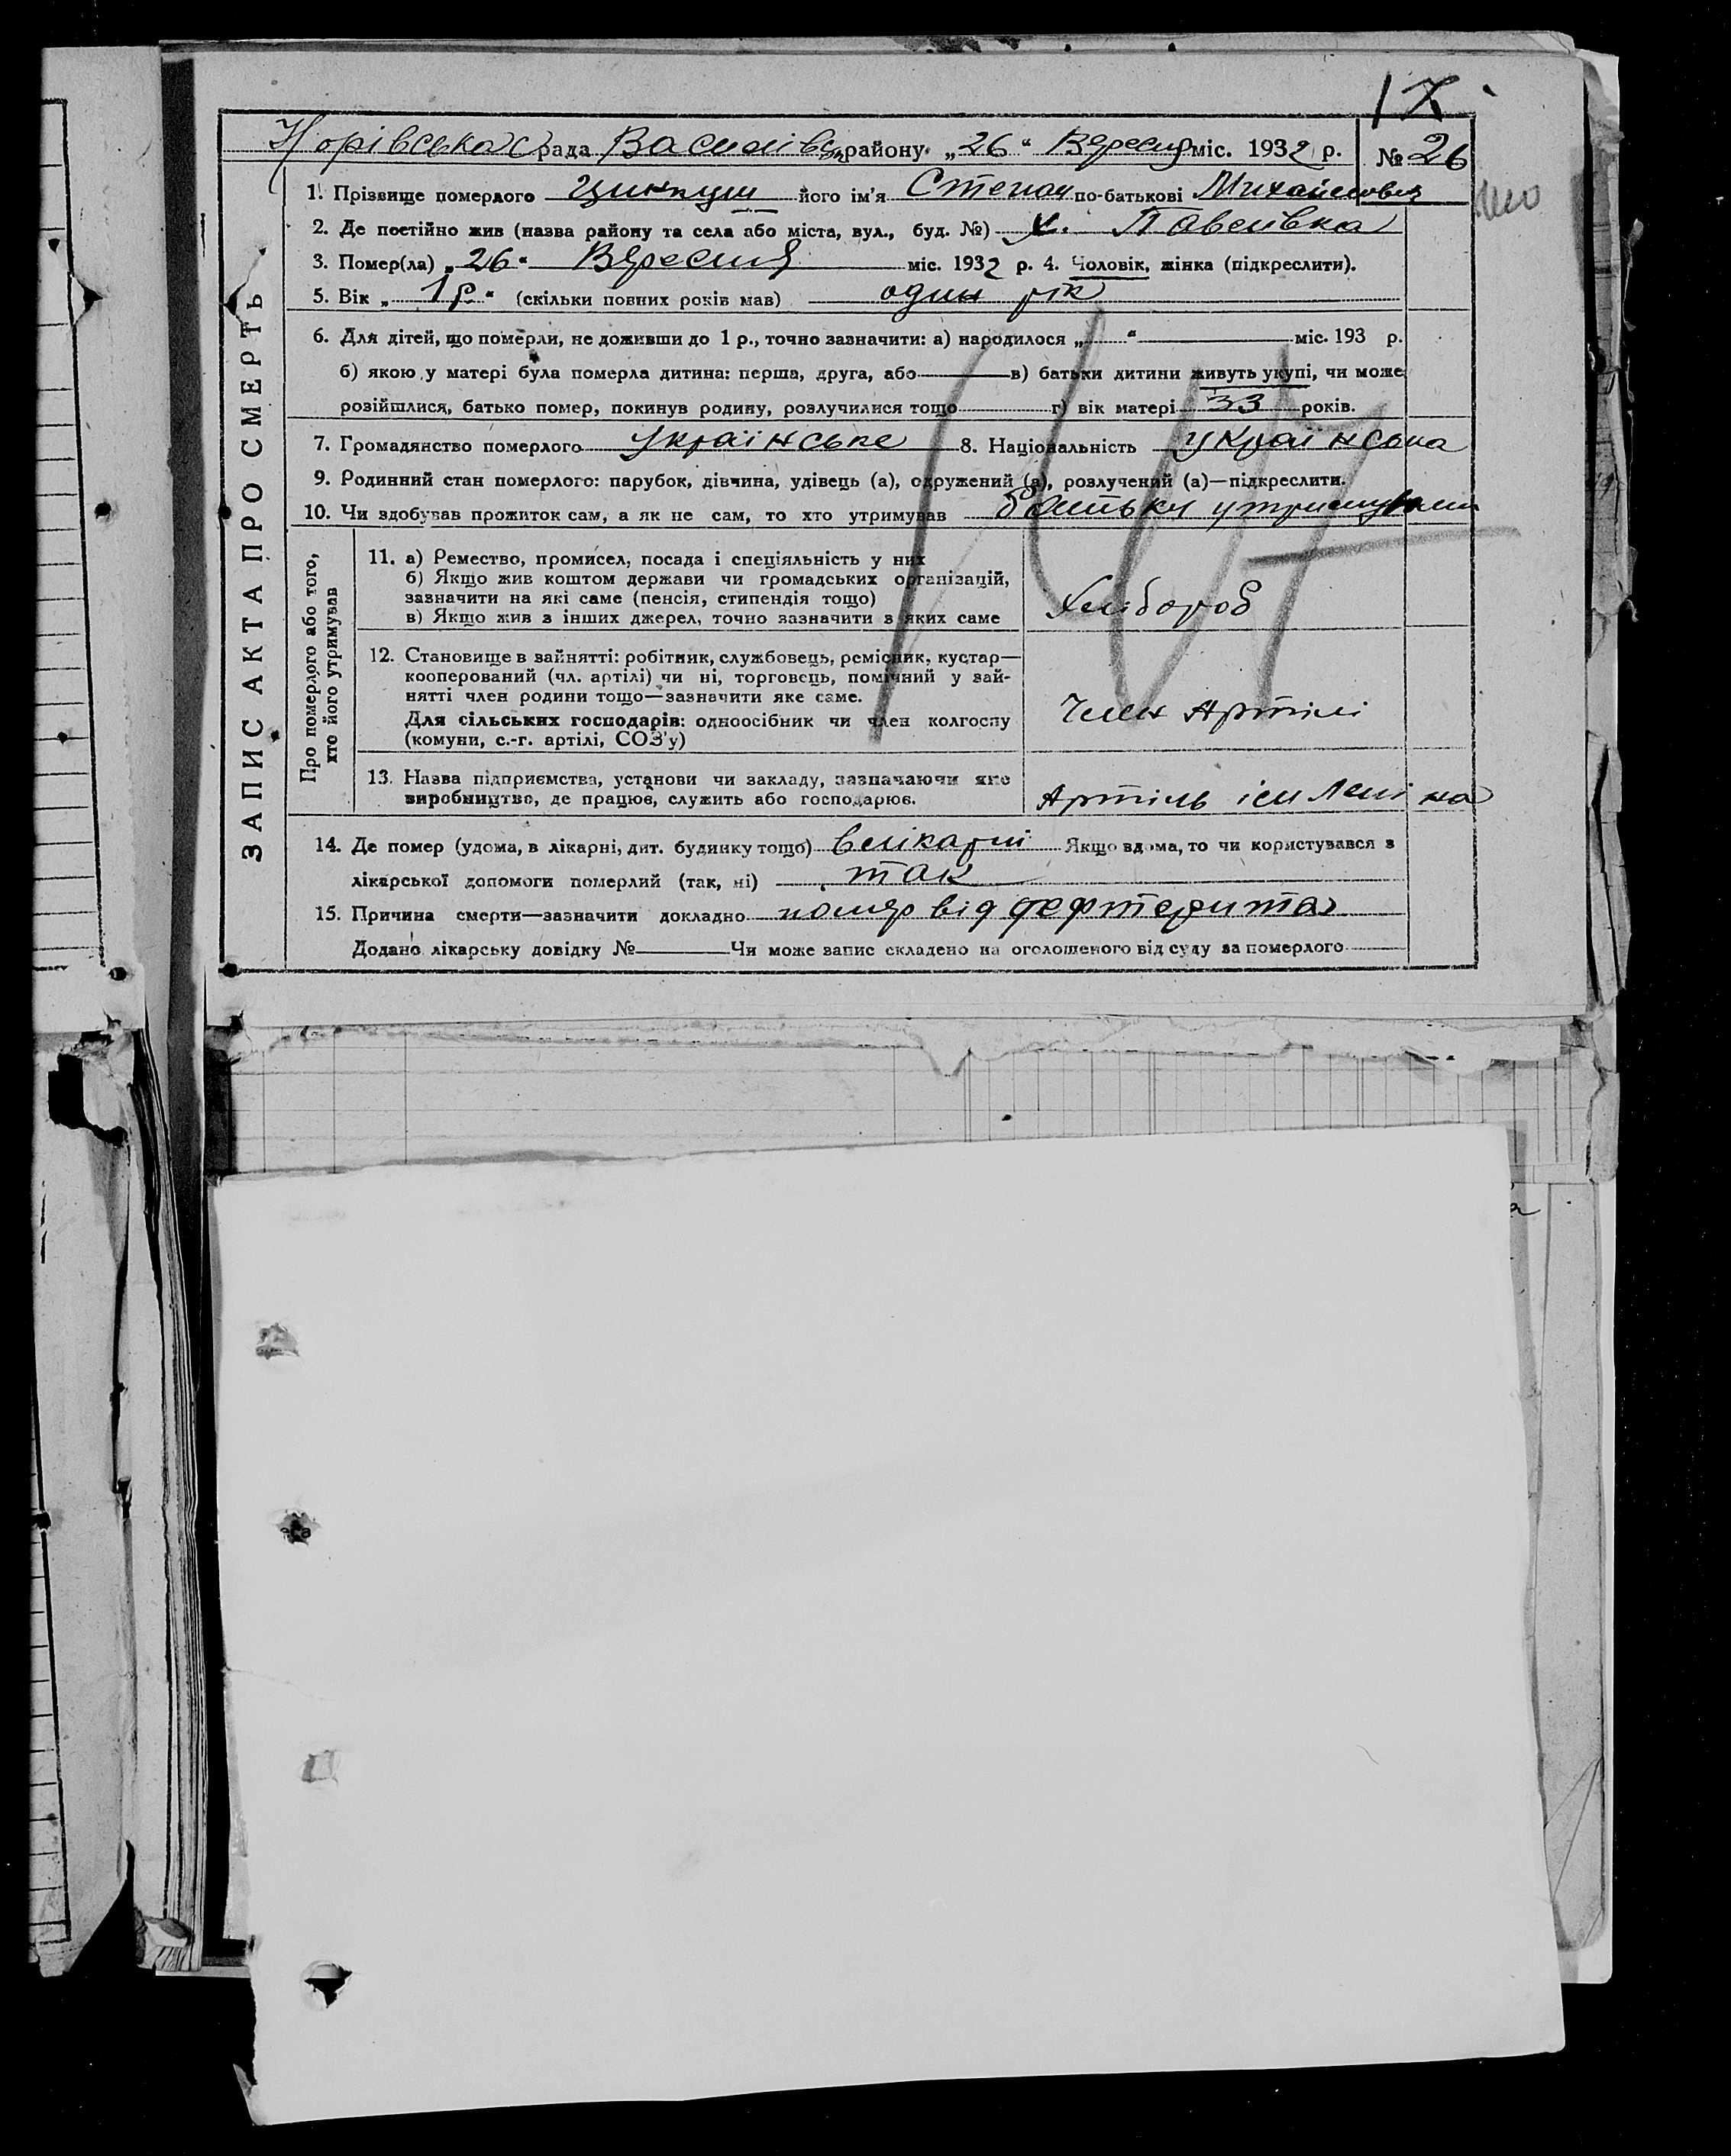 IX
рада району. „26“ Вересня міс. 1932 р. № 26
1. Прізвище померлого його ім'я Степан по-батькові Михайлович
2. Де постійно жив (назва району та села або міста, вул., буд. №) х. Павлівка
3. Помер(ла) „26“ Вересня міс. 1932 р. 4. Чоловік, жінка (підкреслити).
5. Вік „1 р.“ (скільки повних років мав) один рік
6. Для дітей, що померли, не доживши до 1 р., точно зазначити: а) народилося „ “ міс. 193 р.
б) якою у матері була померла дитина: перша, друга, або в) батьки дитини живуть укупі, чи може
розійшлися, батько помер, покинув родину, розлучилися тощо г) вік матері 33 років.
7. Громадянство померлого українське 8. Національність українська
9. Родинний стан померлого: парубок, дівчина, удівець (а), одружений (а), розлучений (а)—підкреслити.
10. Чи здобував прожиток сам, а як не сам, то хто утримував батьки утримували
ЗАПИС АКТА ПРО СМЕРТЬ
Про померлого або того,
хто його утримував
11. а) Ремество, промисел, посада і спеціяльність у них
б) Якщо жив коштом держави чи громадських організацій,
зазначити на які саме (пенсія, стипендія тощо)
в) Якщо жив з інших джерел, точно зазначити з яких саме
Хлібороб
12. Становище в зайнятті: робітник, службовець, ремісник, кустар—
кооперований (чл. артілі) чи ні, торговець, помічний у зай-
нятті член родини тощо—зазначити яке саме.
Для сільських господарів: одноосібник чи член колгоспу
(комуни, с.-г. артілі, СОЗ'у)
Член Артілі
13. Назва підприємства, установи чи закладу, зазначаючи яке
виробництво, де працює, служить або господарює.
Артіль ім Леніна
14. Де помер (удома, в лікарні, дит. будинку тощо) в лікарні Якщо вдома, то чи користувався з
лікарської допомоги померлий (так, ні) так
15. Причина смерти—зазначити докладно помер від
Додано лікарську довідку № Чи може запис складено на оголошеного від суду за померлого